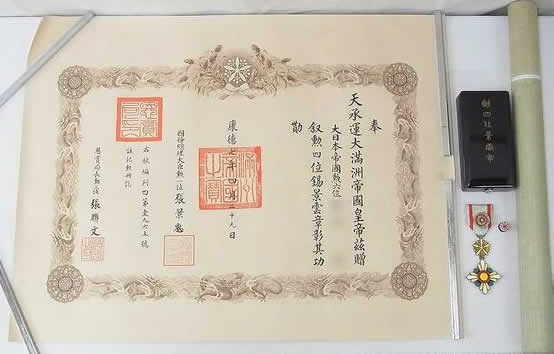 奉
天承運大滿洲帝國皇帝茲贈
大日本帝國勲六位
叙勲四位錫景雲章彰其功
勛
康德七年四月
十九日
國務總理大臣勲一位 張景惠
右狀編列四第壹九六五號
恩賞局長
張聯文
勲四位景雲章